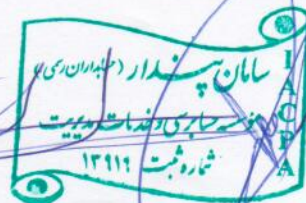 سامان پندار (حسابداران رسمی)
موسسه حسابرسی و خدمات مدیریت
شماره ثبت ۱۳۹۱۹
IACPA